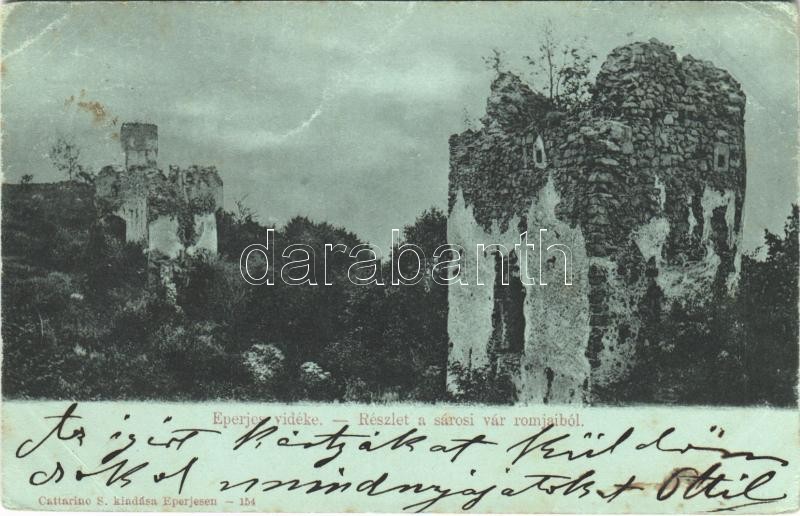 darabanth.com
Eperjes vidéke. — Részlet a sárosi vár romjaiból.
Az igért kártyákat küldöm
csókol mindnyájatokat Ottil
Cattarino S. kiadása Eperjesen — 154